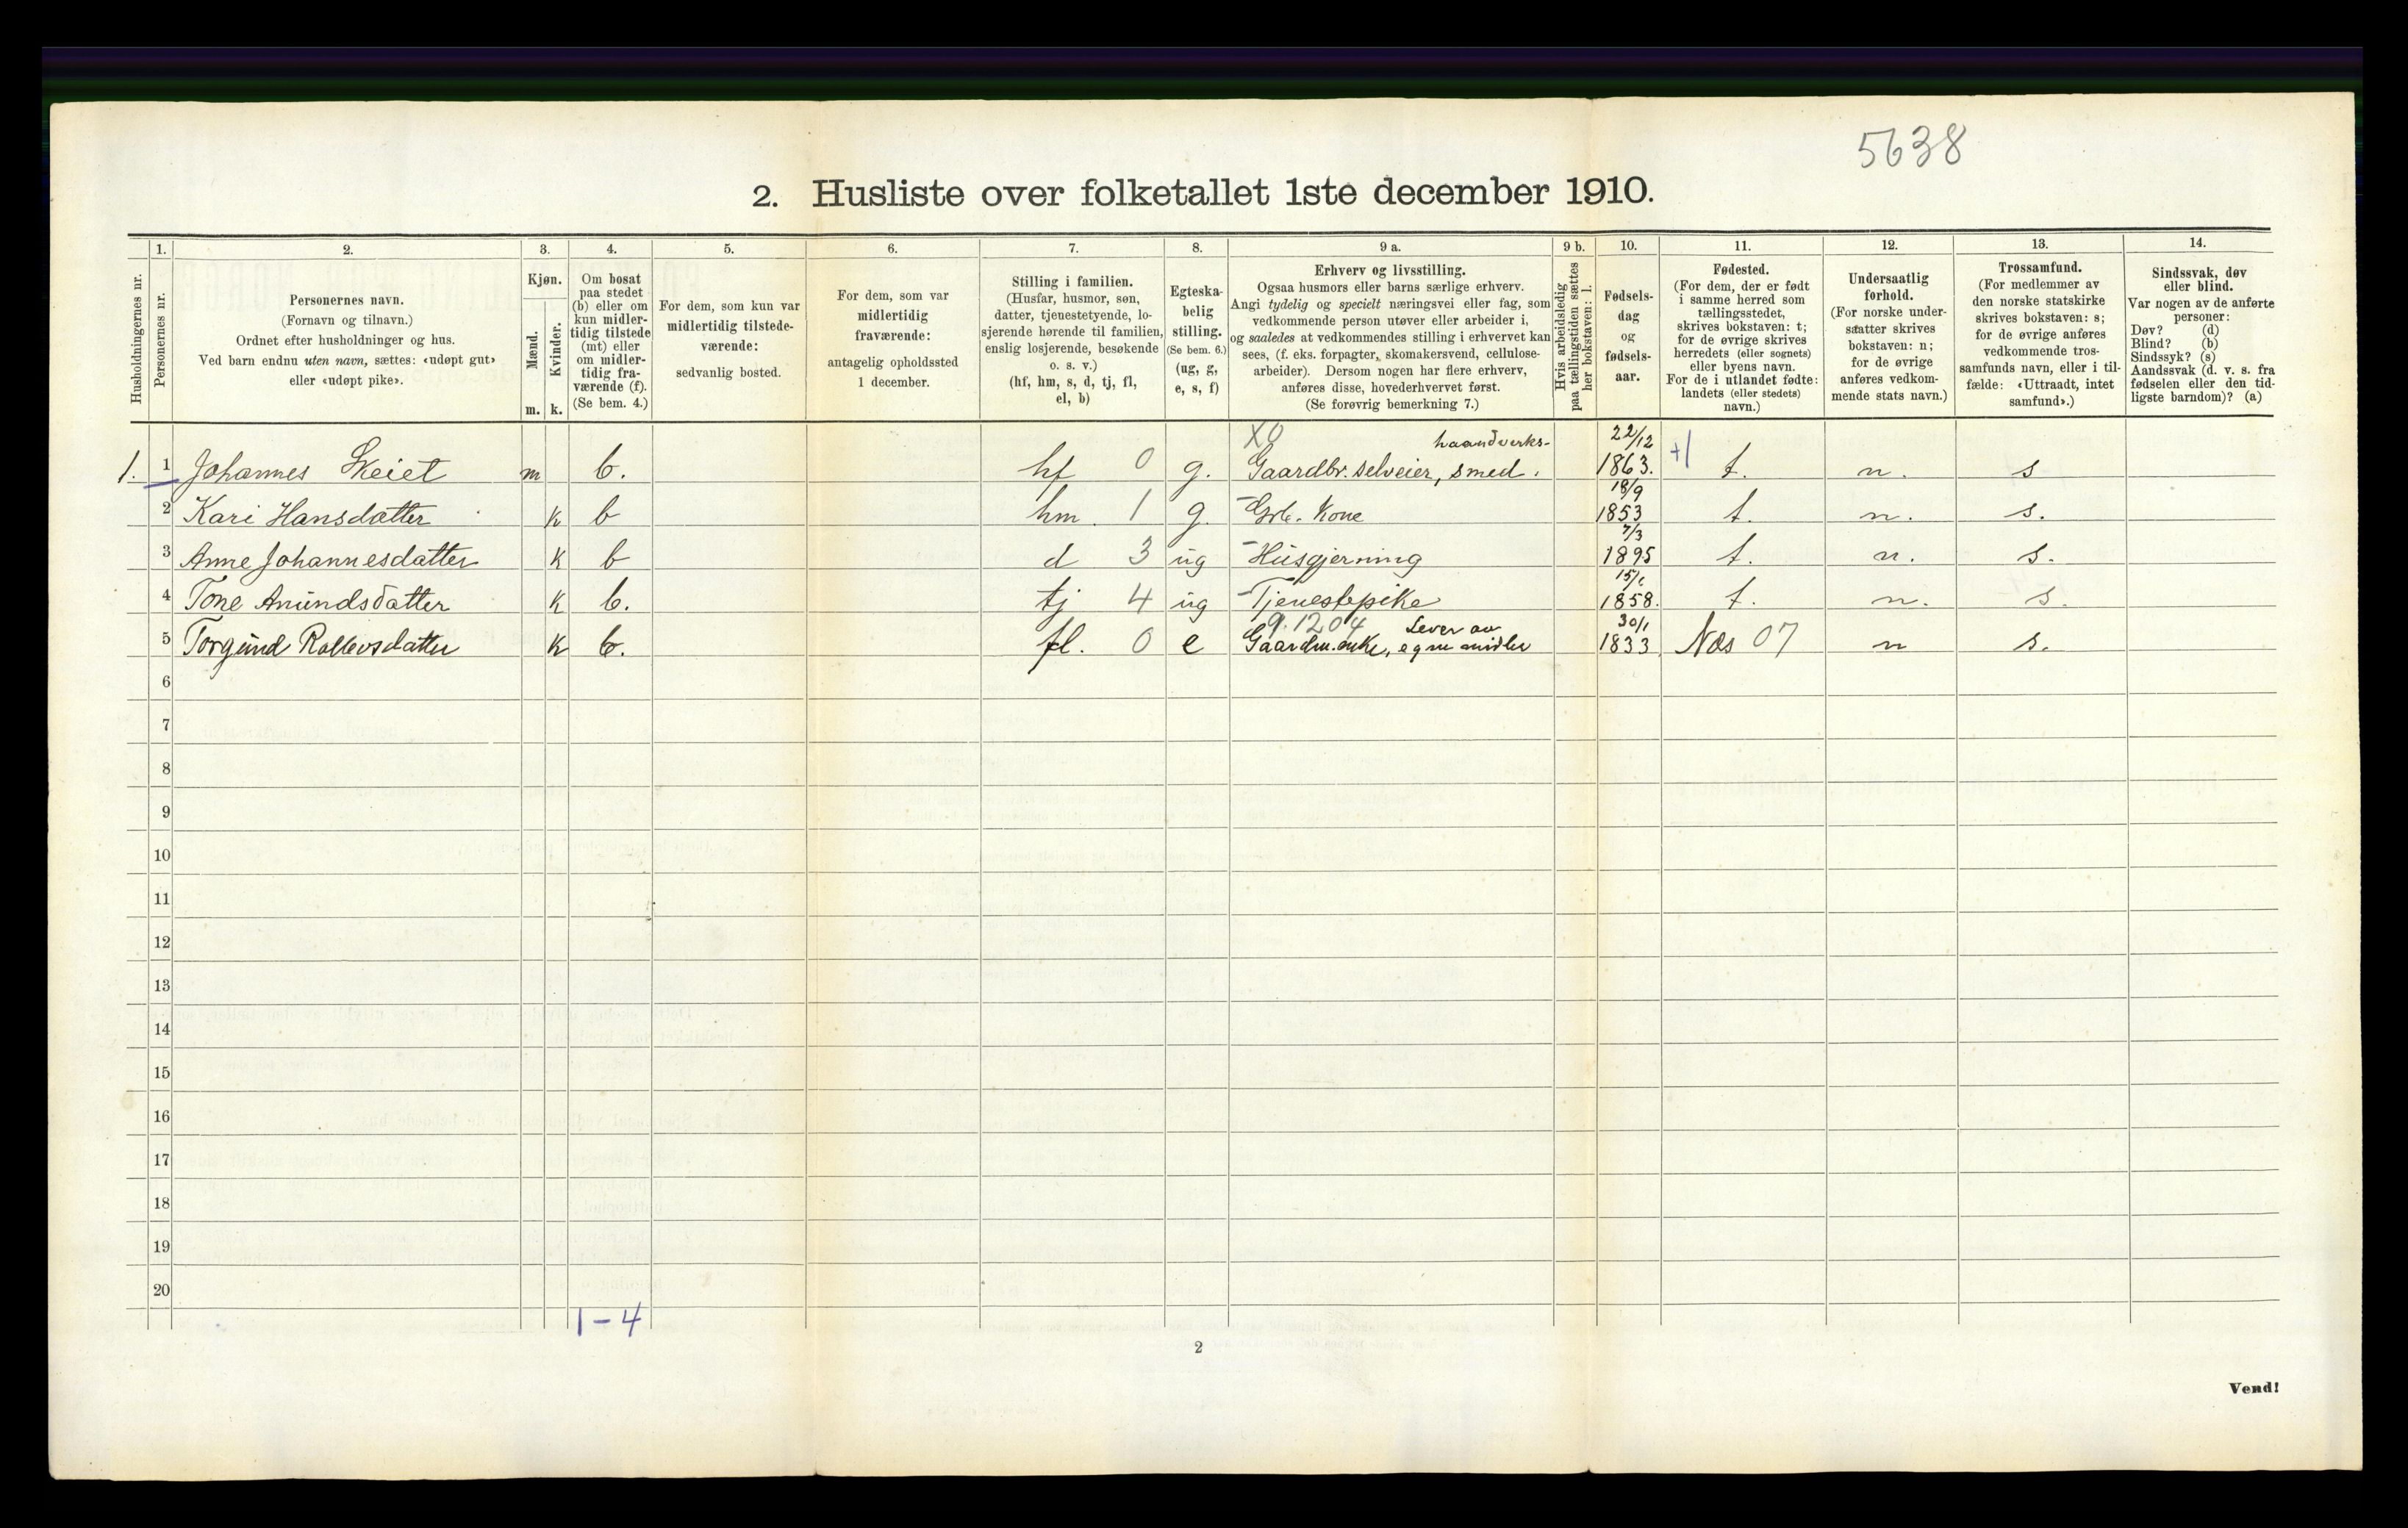 5638
2. Husliste over folketallet 1ste december 1910.
Husholdningernes nr.
1.
Personernes nr.
2.
Personernes navn.
(Fornavn og tilnavn.)
Ordnet efter husholdninger og hus.
Ved barn endnu uten navn, sættes: «udøpt gut»
eller «udøpt pike».
3.
Kjøn.
Mænd.
Kvinder.
m. k.
4.
Om bosat
paa stedet
(b) eller om
kun midler-
tidig tilstede
(mt) eller
om midler-
tidig fra-
værende (f).
(Se bem. 4.)
5.
For dem, som kun var
midlertidig tilstede-
værende:
sedvanlig bosted.
6.
For dem, som var
midlertidig
fraværende:
antagelig opholdssted
1 december.
7.
Stilling i familien.
(Husfar, husmor, søn,
datter, tjenestetyende, lo-
sjerende hørende til familien,
enslig losjerende, besøkende
o. s. v.)
(hf, hm, s, d, tj, fl,
el, b)
8.
Egteska-
belig
stilling.
(Se bem. 6.)
(ug, g,
e, s, f)
9 a.
Erhverv og livsstilling.
Ogsaa husmors eller barns særlige erhverv.
Angi tydelig og specielt næringsvei eller fag, som
vedkommende person utøver eller arbeider i,
og saaledes at vedkommendes stilling i erhvervet kan
sees, (f. eks. forpagter, skomakersvend, cellulose-
arbeider). Dersom nogen har flere erhverv,
anføres disse, hovederhvervet først.
(Se forøvrig bemerkning 7.)
9 b.
Hvis arbeidsledig
paa tællingstiden sættes
her bokstaven: l.
10.
Fødsels-
dag
og
fødsels-
aar.
11.
Fødested.
(For dem, der er født
i samme herred som
tællingsstedet,
skrives bokstaven: t;
for de øvrige skrives
herredets (eller sognets)
eller byens navn.
For de i utlandet fødte:
landets (eller stedets)
navn.)
12.
Undersaatlig
forhold.
(For norske under-
saatter skrives
bokstaven: n;
for de øvrige
anføres vedkom-
mende stats navn.)
13.
Trossamfund.
(For medlemmer av
den norske statskirke
skrives bokstaven: s;
for de øvrige anføres
vedkommende tros-
samfunds navn, eller i til-
fælde: «Uttraadt, intet
samfund».)
14.
Sindssvak, døv
eller blind.
Var nogen av de anførte
personer:
Døv? (d)
Blind? (b)
Sindssyk? (s)
Aandssvak (d. v. s. fra
fødselen eller den tid-
ligste barndom)? (a)
X0 haandverks- 22/12
1. 1 Johannes Skeiet m b. hf 0 g. Gaardbr. selveier, smed. 1863. +1 t. n. s
18/9
2 Kari Hansdatter k b hm. 1 g. Grb. Kone 1853 t. n. s.
7/3
3 Anne Johannesdatter k b d 3 ug Husgjerning 1895 t. n. s.
15/6
4 Tone Anundsdatter k b. tj 4 ug Tjenestepike 1858. t. n. s.
9.1204 Lever av 30/1
5 Torgund Rollevsdatter k b. fl. 0 e Gaardm. enke, egne midler 1833 Næs 07 n s.
6
7
8
9
10
11
12
13
14
15
16
17
18
19
20
1-4
2
Vend!